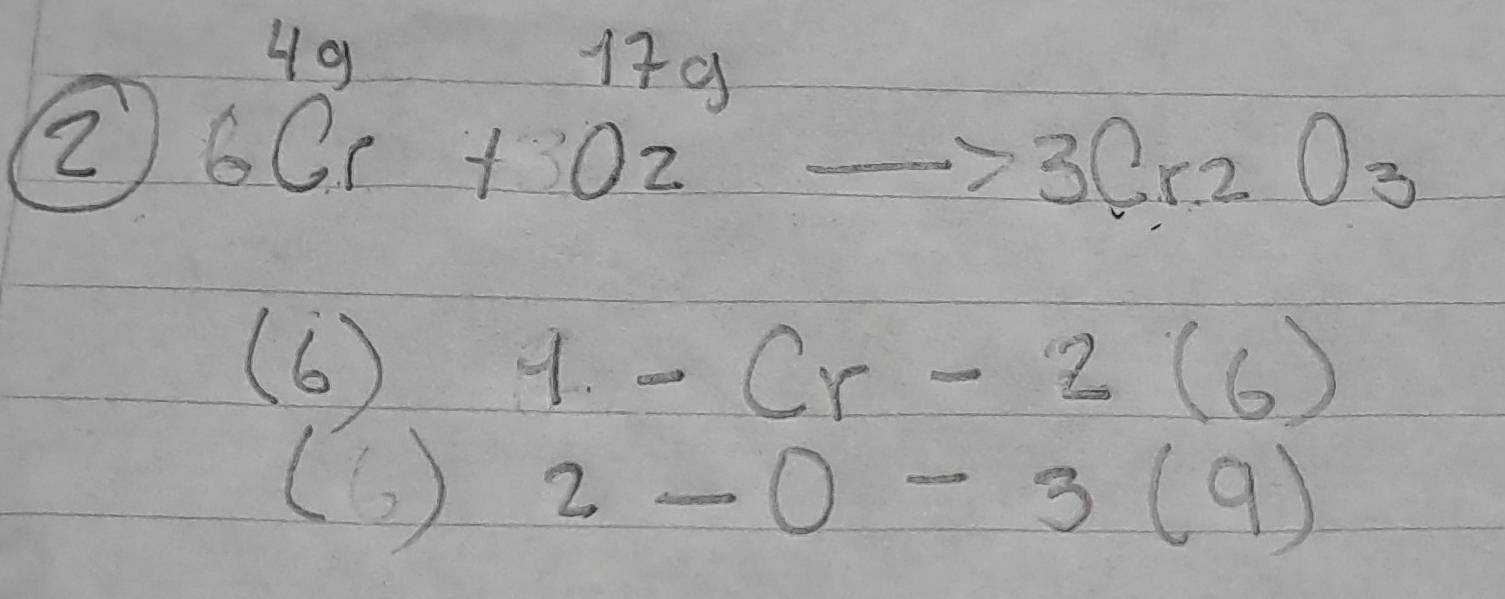 4g 17g
2 6Cr + 3O2 —> 3Cr2 O3
(6) 1 - Cr - 2 (6)
(6) 2 - O - 3 (9)